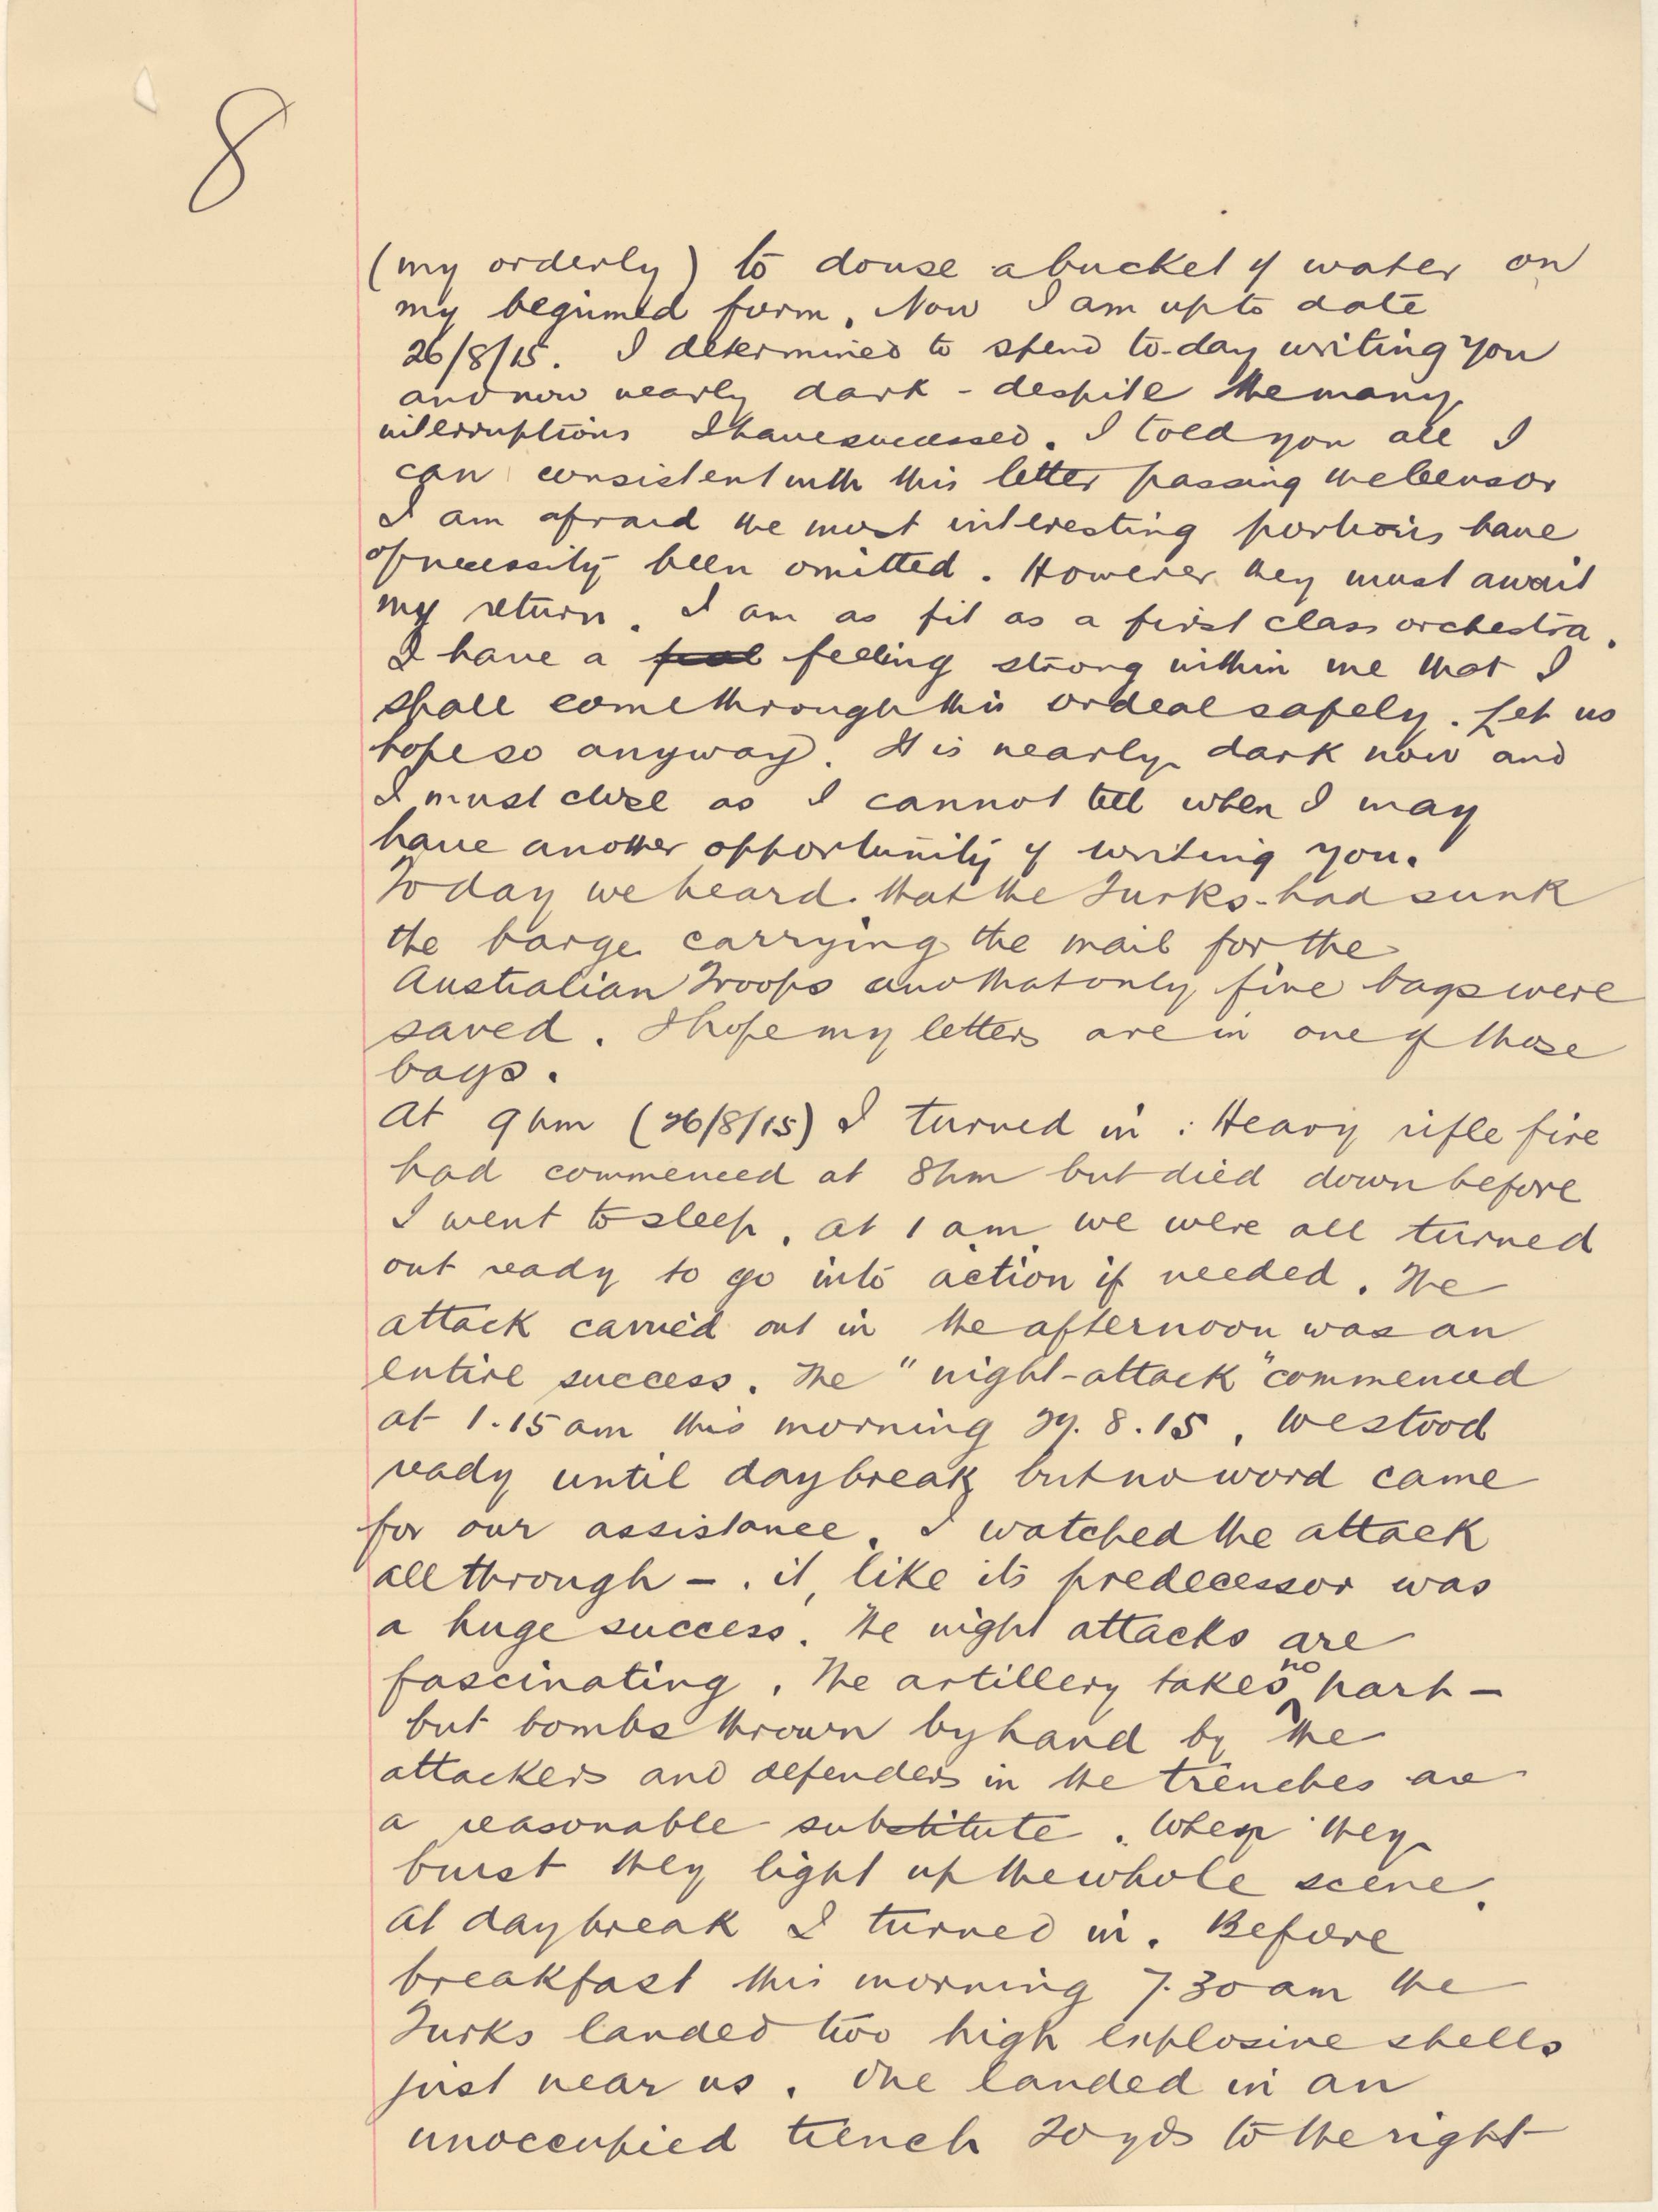 8
(my orderly) to douse a bucket of water on
my begrimed form. Now I am up to date
26/8/15. I determined to spend to-day writing you
and now nearly dark - despite the many
interruptions I have succeeded. I told you all I
can consistent with this letter passing the Censor
I am afraid the most interesting portions have
of necessity been omitted. However they must await
my return. I am as fit as a first class orchestra.
I have a feeling strong within me that I
shall come through this ordeal safely. Let us
hope so anyway. It is nearly dark now and
I must close as I cannot tell when I may
have another opportunity of writing you.
Today we heard that the Turks had sunk
the barge carrying the mail for the
Australian Troops and that only five bags were
saved. I hope my letters are in one of those
bags.
At 9 pm (26/8/15) I turned in: Heavy rifle fire
had commenced at 8 pm but died down before
I went to sleep. At 1 am we were all turned
out ready to go into action if needed. The
attack carried out in the afternoon was an
entire success. The "night-attack" commenced
at 1.15 am this morning 27.8.15. We stood
ready until daybreak but no word came
for our assistance. I watched the attack
all through -. it, like its predecessor was
a huge success. The night attacks are
fascinating. The artillery takes no part -
but bombs thrown by hand by the
attackers and defenders in the trenches are
a reasonable substitute. When they
burst they light up the whole scene.
At daybreak I turned in. Before
breakfast this morning 7.30 am the
Turks landed two high explosive shells
just near us. One landed in an
unoccupied trench 20 yds to the right